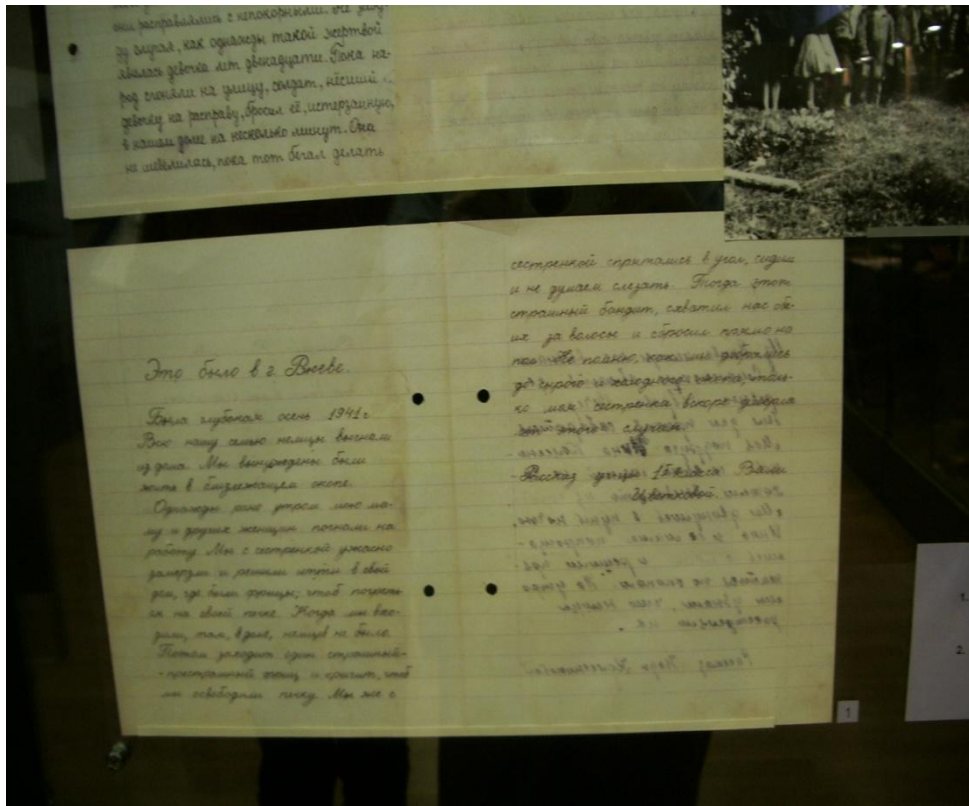 они расправлялись с непокорными.
ду случая, как однажды такой жертвой
явилась девочка лет двенадцати. Пока на-
род сгоняли на улицу, солдат, нёсший
девочку на расправу, бросил её, истерзанную,
в нашем доме на несколько минут. Она
не шевелилась, пока тот бегал делать
Это было в г.
Была глубокая осень 1941 г
Всю нашу семью немцы выгнали
из дома. Мы вынуждены были
жить в близлежащем окопе.
Однажды рано утром мою ма-
му и других женщин погнали на
работу. Мы с сестренкой ужасно
замерзли и решили пойти в свой
дом, где были фрицы, чтоб погреть-
ся на своей печке. Когда мы вхо-
дили, там, в доме, немцев не было.
Потом заходит один страшный-
-престрашный фриц и кричит, чтоб
мы освободили печку. Мы же с
сестренкой спрятались в угол, сидим
и не думаем слезать. Тогда этот
страшный бандит, схватил нас обе-
их за волосы и сбросил прямо на
пол. Не помню, как мы добрались
до сырого и холодного окопа, толь-
ко моя сестренка вскоре умерла
от этого случая.
Рассказ 15 класса Вали
Цветковой.
1
1.
2.